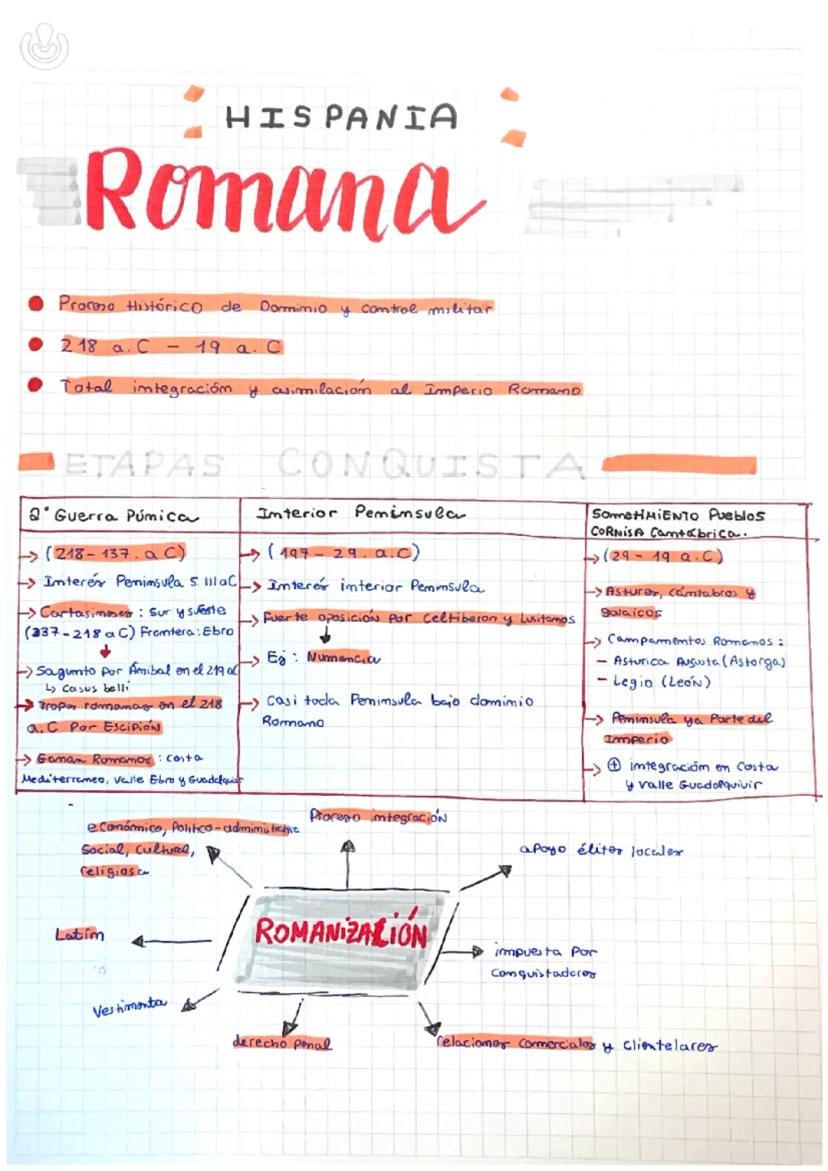 HISPANIA
Romana
Proceso Histórico de Dominio y control militar
218 a.C - 19 a.C
Total integración y asimilación al Imperio Romano
ETAPAS CONQUISTA
2ª Guerra Púnica
→ (218-137. a C)
→ Interés Península S. III a C
→ Cartagineses: Sur y sureste
(237-218 a C) Frontera: Ebro
→ Sagunto por Aníbal en el 219 aC
↳ casus belli
→ Tropas romanas en el 218
a.C Por Escipión
→ Ganan Romanos: costa
Mediterraneo, Valle Ebro y Guadalquivir
Interior Península
→ (197-29. a.C)
→ Interés interior Península
→ Fuerte oposición por Celtíberos y Lusitanos
→ Ej: Numancia
→ Casi toda Península bajo dominio
Romano
Sometimiento Pueblos
Cornisa Cantábrica.
→ (29-19 a.C)
→ Astures, cántabros y
galaicos
→ Campamentos Romanos:
- Asturica Augusta (Astorga)
- Legio (León)
→ Península ya Parte del
Imperio
→ ⊕ integración en Costa
y valle Guadalquivir
económico, Político-administrativo
Social, cultural,
religiosa
Proceso integración
apoyo élites locales
ROMANIZACIÓN
Latín
impuesta Por
Conquistadores
Vestimenta
derecho penal
relaciones comerciales y clientelares